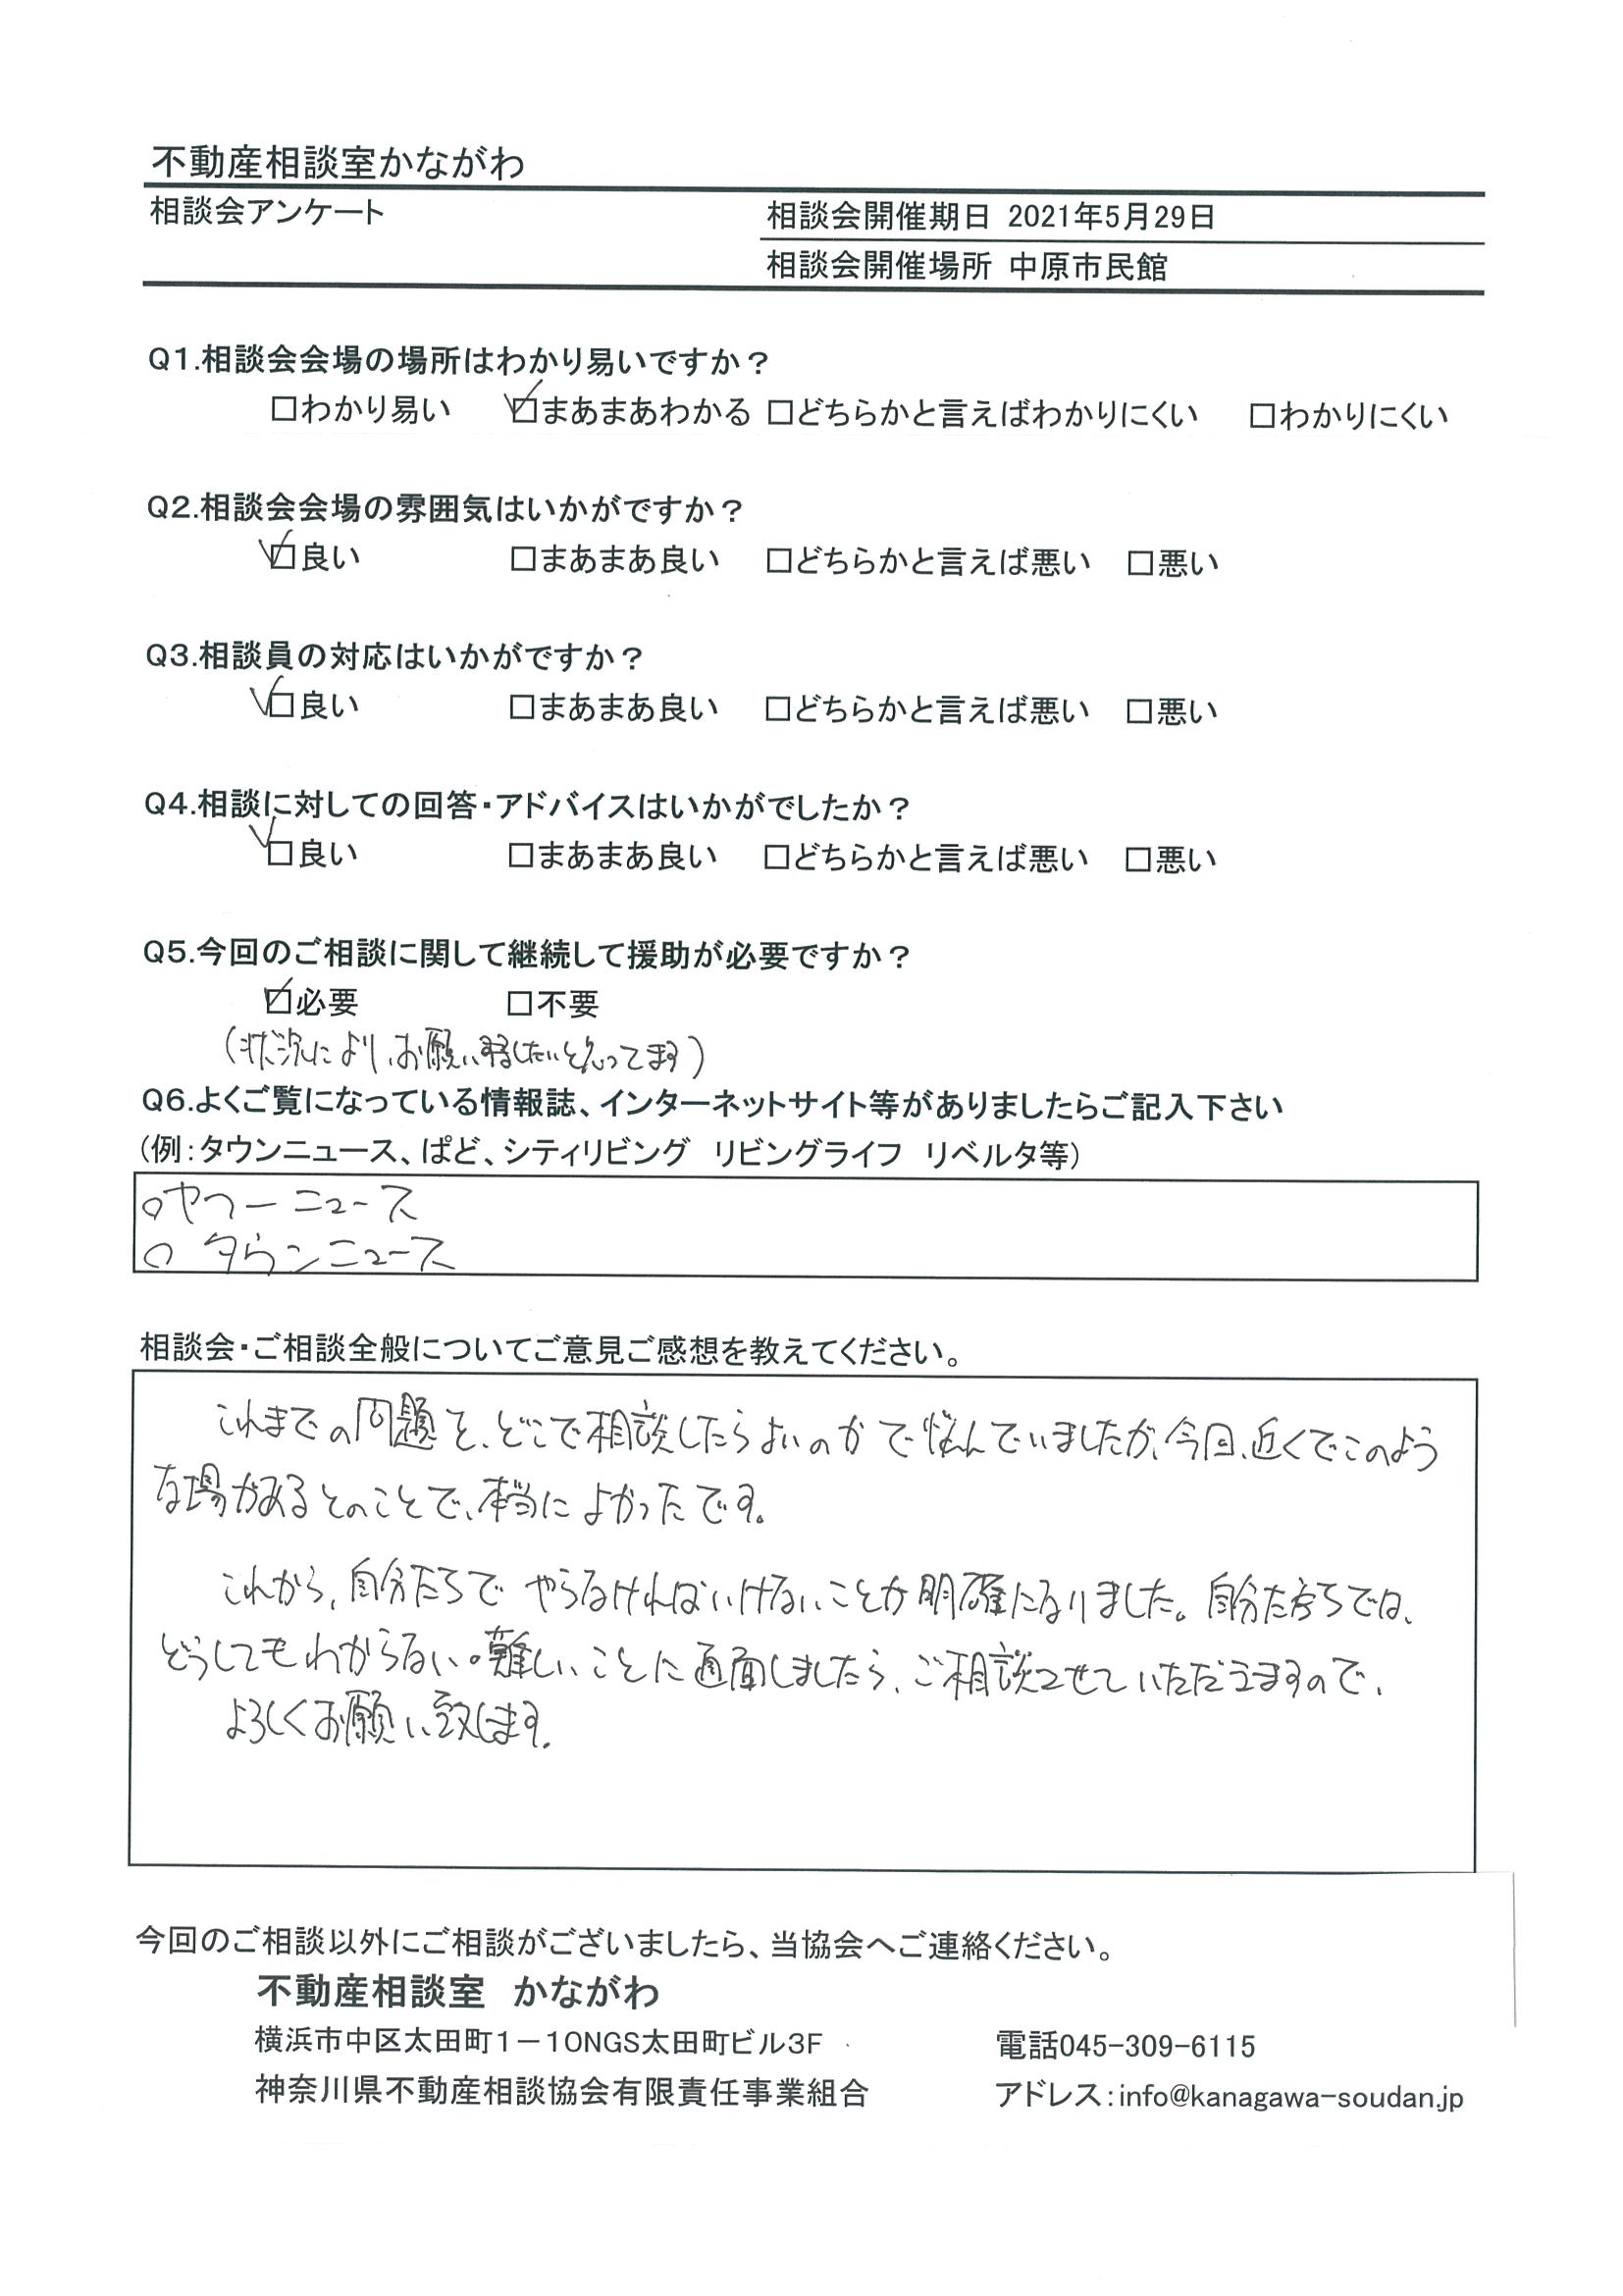 不動産相談室かながわ
相談会アンケート
相談会開催期日 2021年5月29日
相談会開催場所 中原市民館
Q1.相談会会場の場所はわかり易いですか？
□わかり易い ☑まあまあわかる □どちらかと言えばわかりにくい □わかりにくい
Q2.相談会会場の雰囲気はいかがですか？
☑良い □まあまあ良い □どちらかと言えば悪い □悪い
Q3.相談員の対応はいかがですか？
☑良い □まあまあ良い □どちらかと言えば悪い □悪い
Q4.相談に対しての回答・アドバイスはいかがでしたか？
☑良い □まあまあ良い □どちらかと言えば悪い □悪い
Q5.今回のご相談に関して継続して援助が必要ですか？
☑必要 □不要
(状況により、お願いしたいと思ってます)
Q6.よくご覧になっている情報誌、インターネットサイト等がありましたらご記入下さい
(例：タウンニュース、ぱど、シティリビング リビングライフ リベルタ等)
○ヤフーニュース
○ タウンニュース
相談会・ご相談全般についてご意見ご感想を教えてください。
これまでの問題を、どこで相談したらよいのかで悩んでいましたが、今回、近くでこのよう
な場があるとのことで、本当によかったです。
これから、自分たちでやらなければいけないことが明確になりました。自分たちでは、
どうしてもわからない。難しいことに直面しましたら、ご相談させていただきますので、
よろしくお願い致します。
今回のご相談以外にご相談がございましたら、当協会へご連絡ください。
不動産相談室 かながわ
横浜市中区太田町1－10NGS太田町ビル3F
電話045-309-6115
神奈川県不動産相談協会有限責任事業組合
アドレス：info@kanagawa-soudan.jp